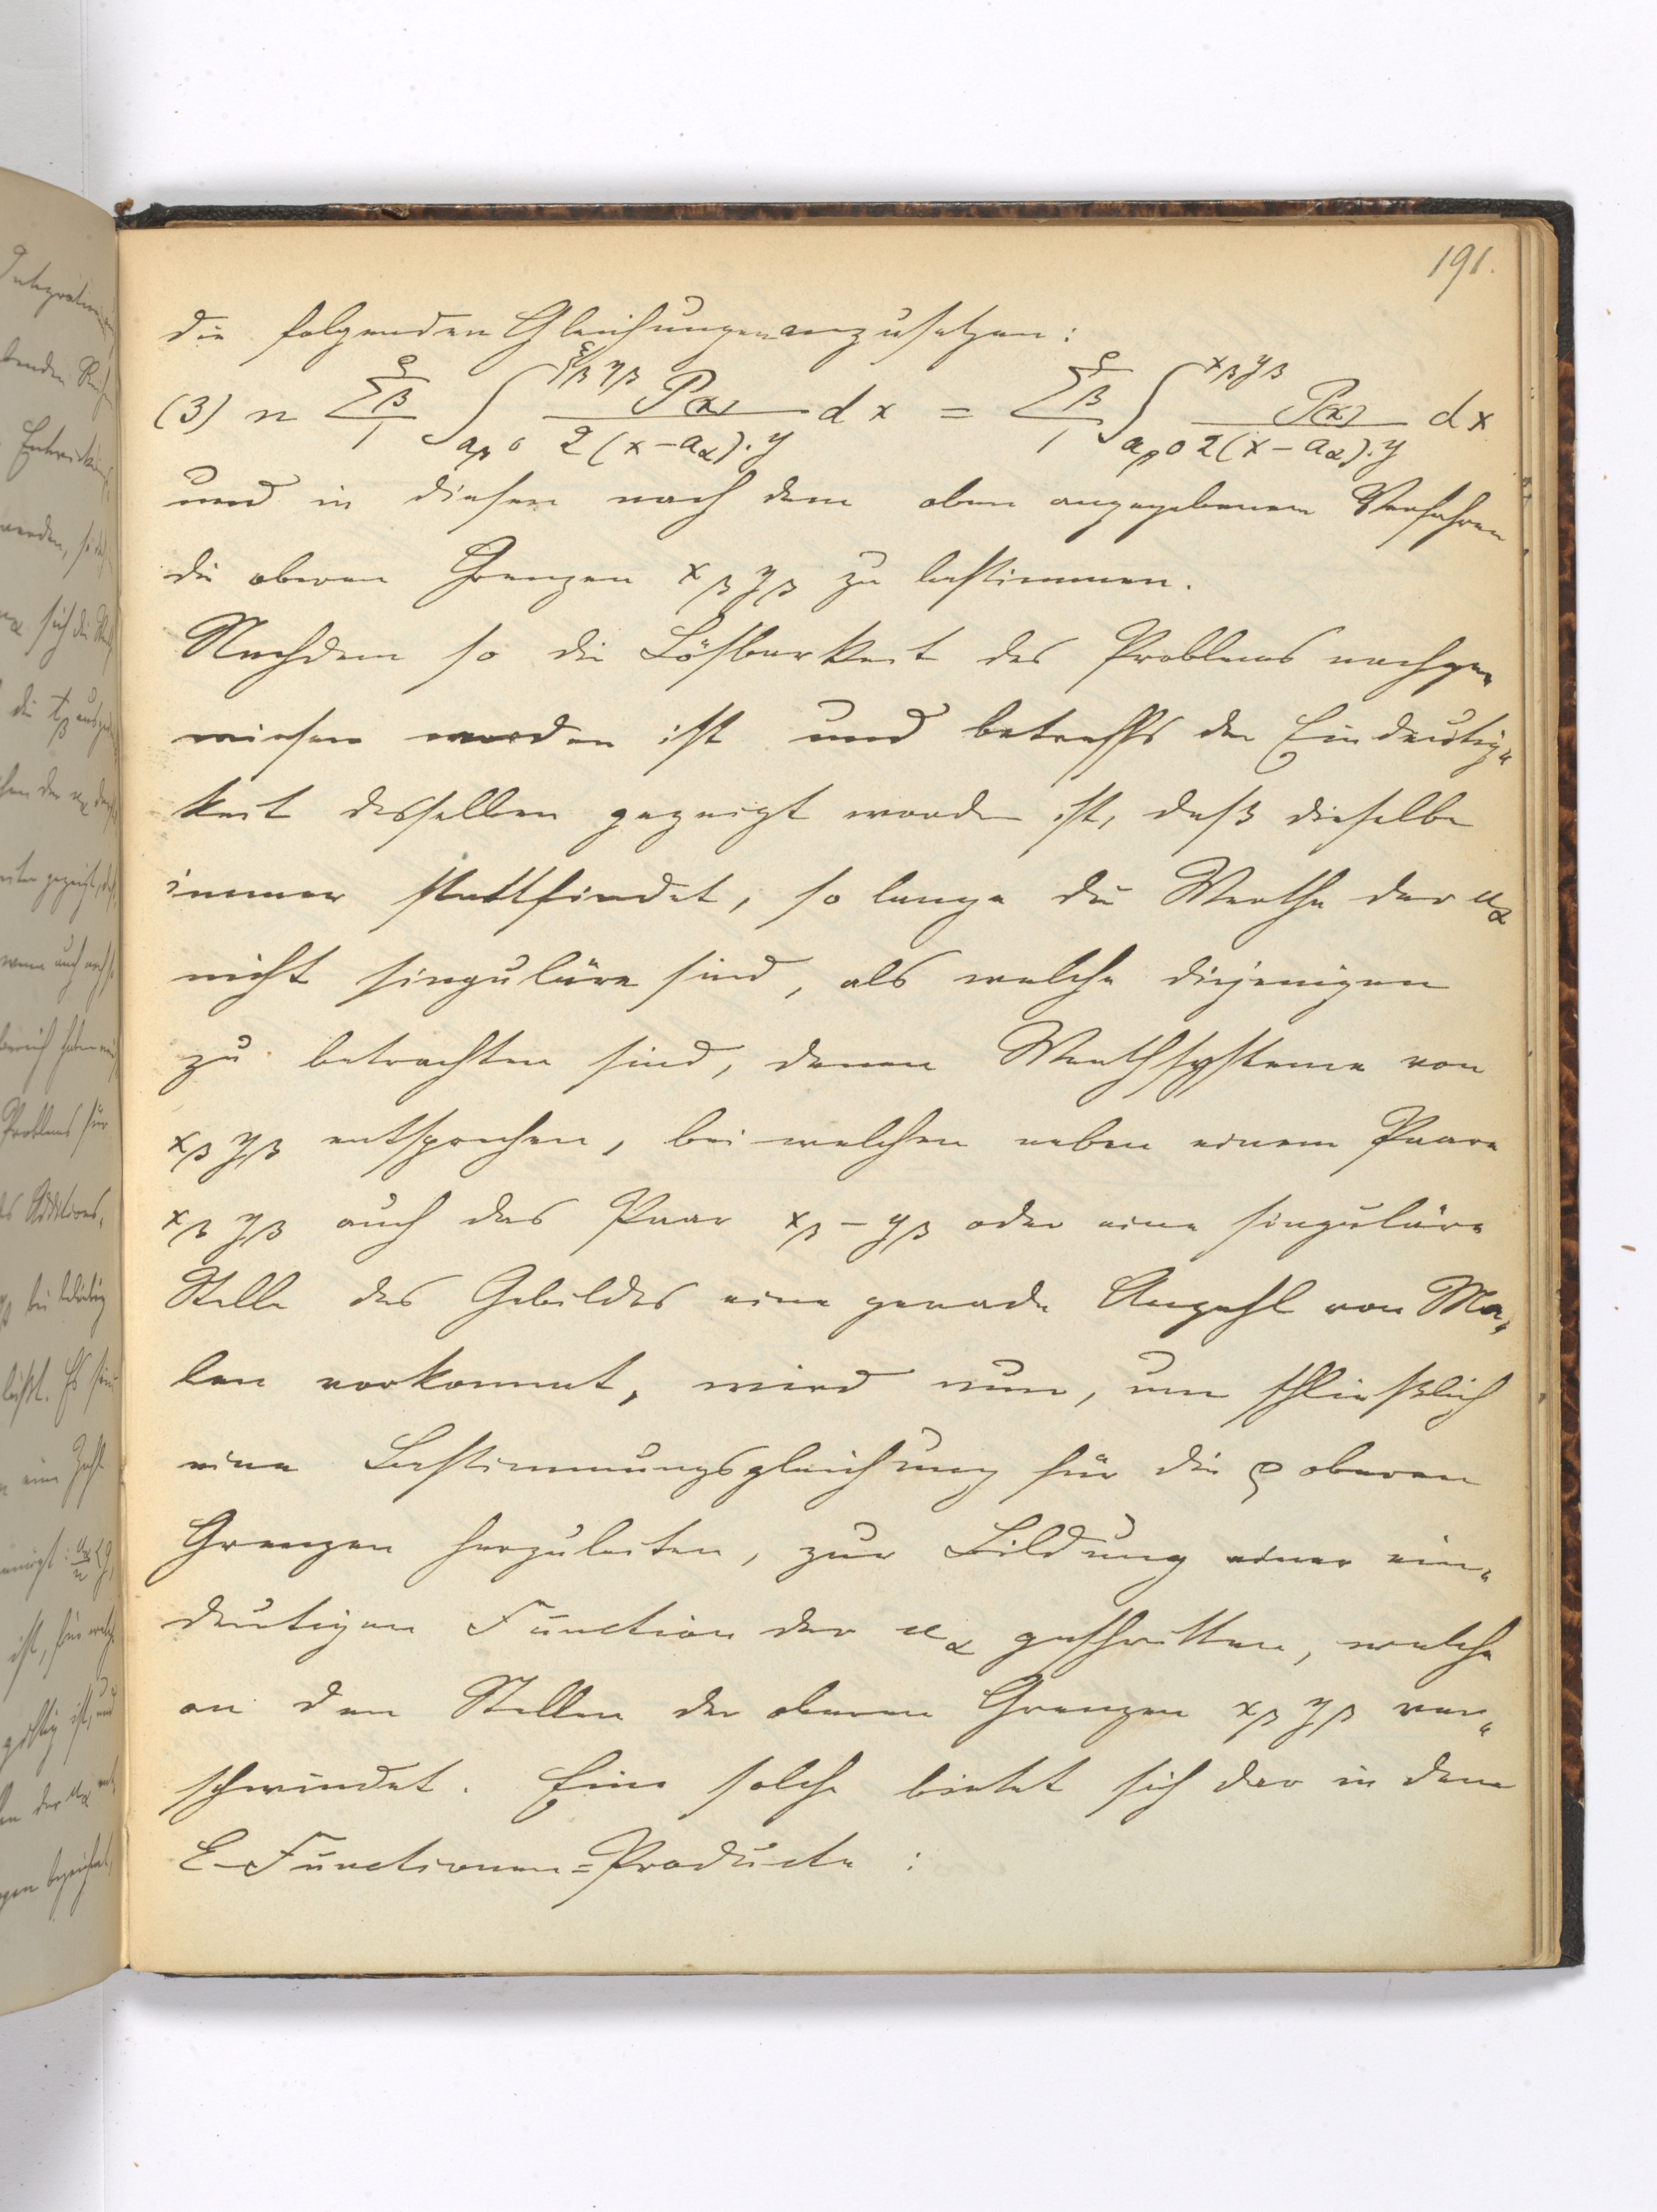 191.
die folgenden Gleichungen anzusetzen:
(3) n \sum_{1}^{ϱ}{}_β \int_{a_β 0}^{ξ_β η_β} \frac{P(x)}{2(x-a_α).y} dx = \sum_{1}^{ϱ}{}_β \int_{a_β 0}^{x_β y_β} \frac{P(x)}{2(x-a_α).y} dx
und in diesen nach dem oben angegebenen Verfahren
die oberen Grenzen x_β y_β zu bestimmen.
Nachdem so die Lösbarkeit des Problems nachge„
wiesen worden ist und betreffs der Eindeutig„
keit desselben gezeigt worden ist, daß dieselbe
immer stattfindet, so lange die Werthe der u_α
nicht singuläre sind, als welche diejenigen
zu betrachten sind, denen Werthsysteme von
x_β y_β entsprechen, bei welchen neben einem Paare
x_β y_β auch das Paar x_β -y_β oder eine singuläre
Stelle des Gebildes eine gerade Anzahl von Ma„
len vorkommt, wird nun, um schließlich
eine Bestimmungsgleichung für die ϱ oberen
Grenzen herzuleiten, zur Bildung einer ein„
deutigen Function der u_α geschritten, welche
an den Stellen der oberen Grenzen x_β y_β ver„
schwindet. Eine solche bietet sich dar in dem
E-Functionen=Producte :